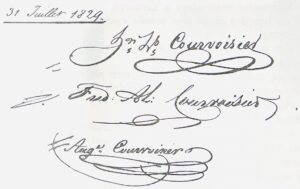 31 Juillet 1829.
Courvoisier
Fred. Al. Courvoisier
Augte. Courvoisier